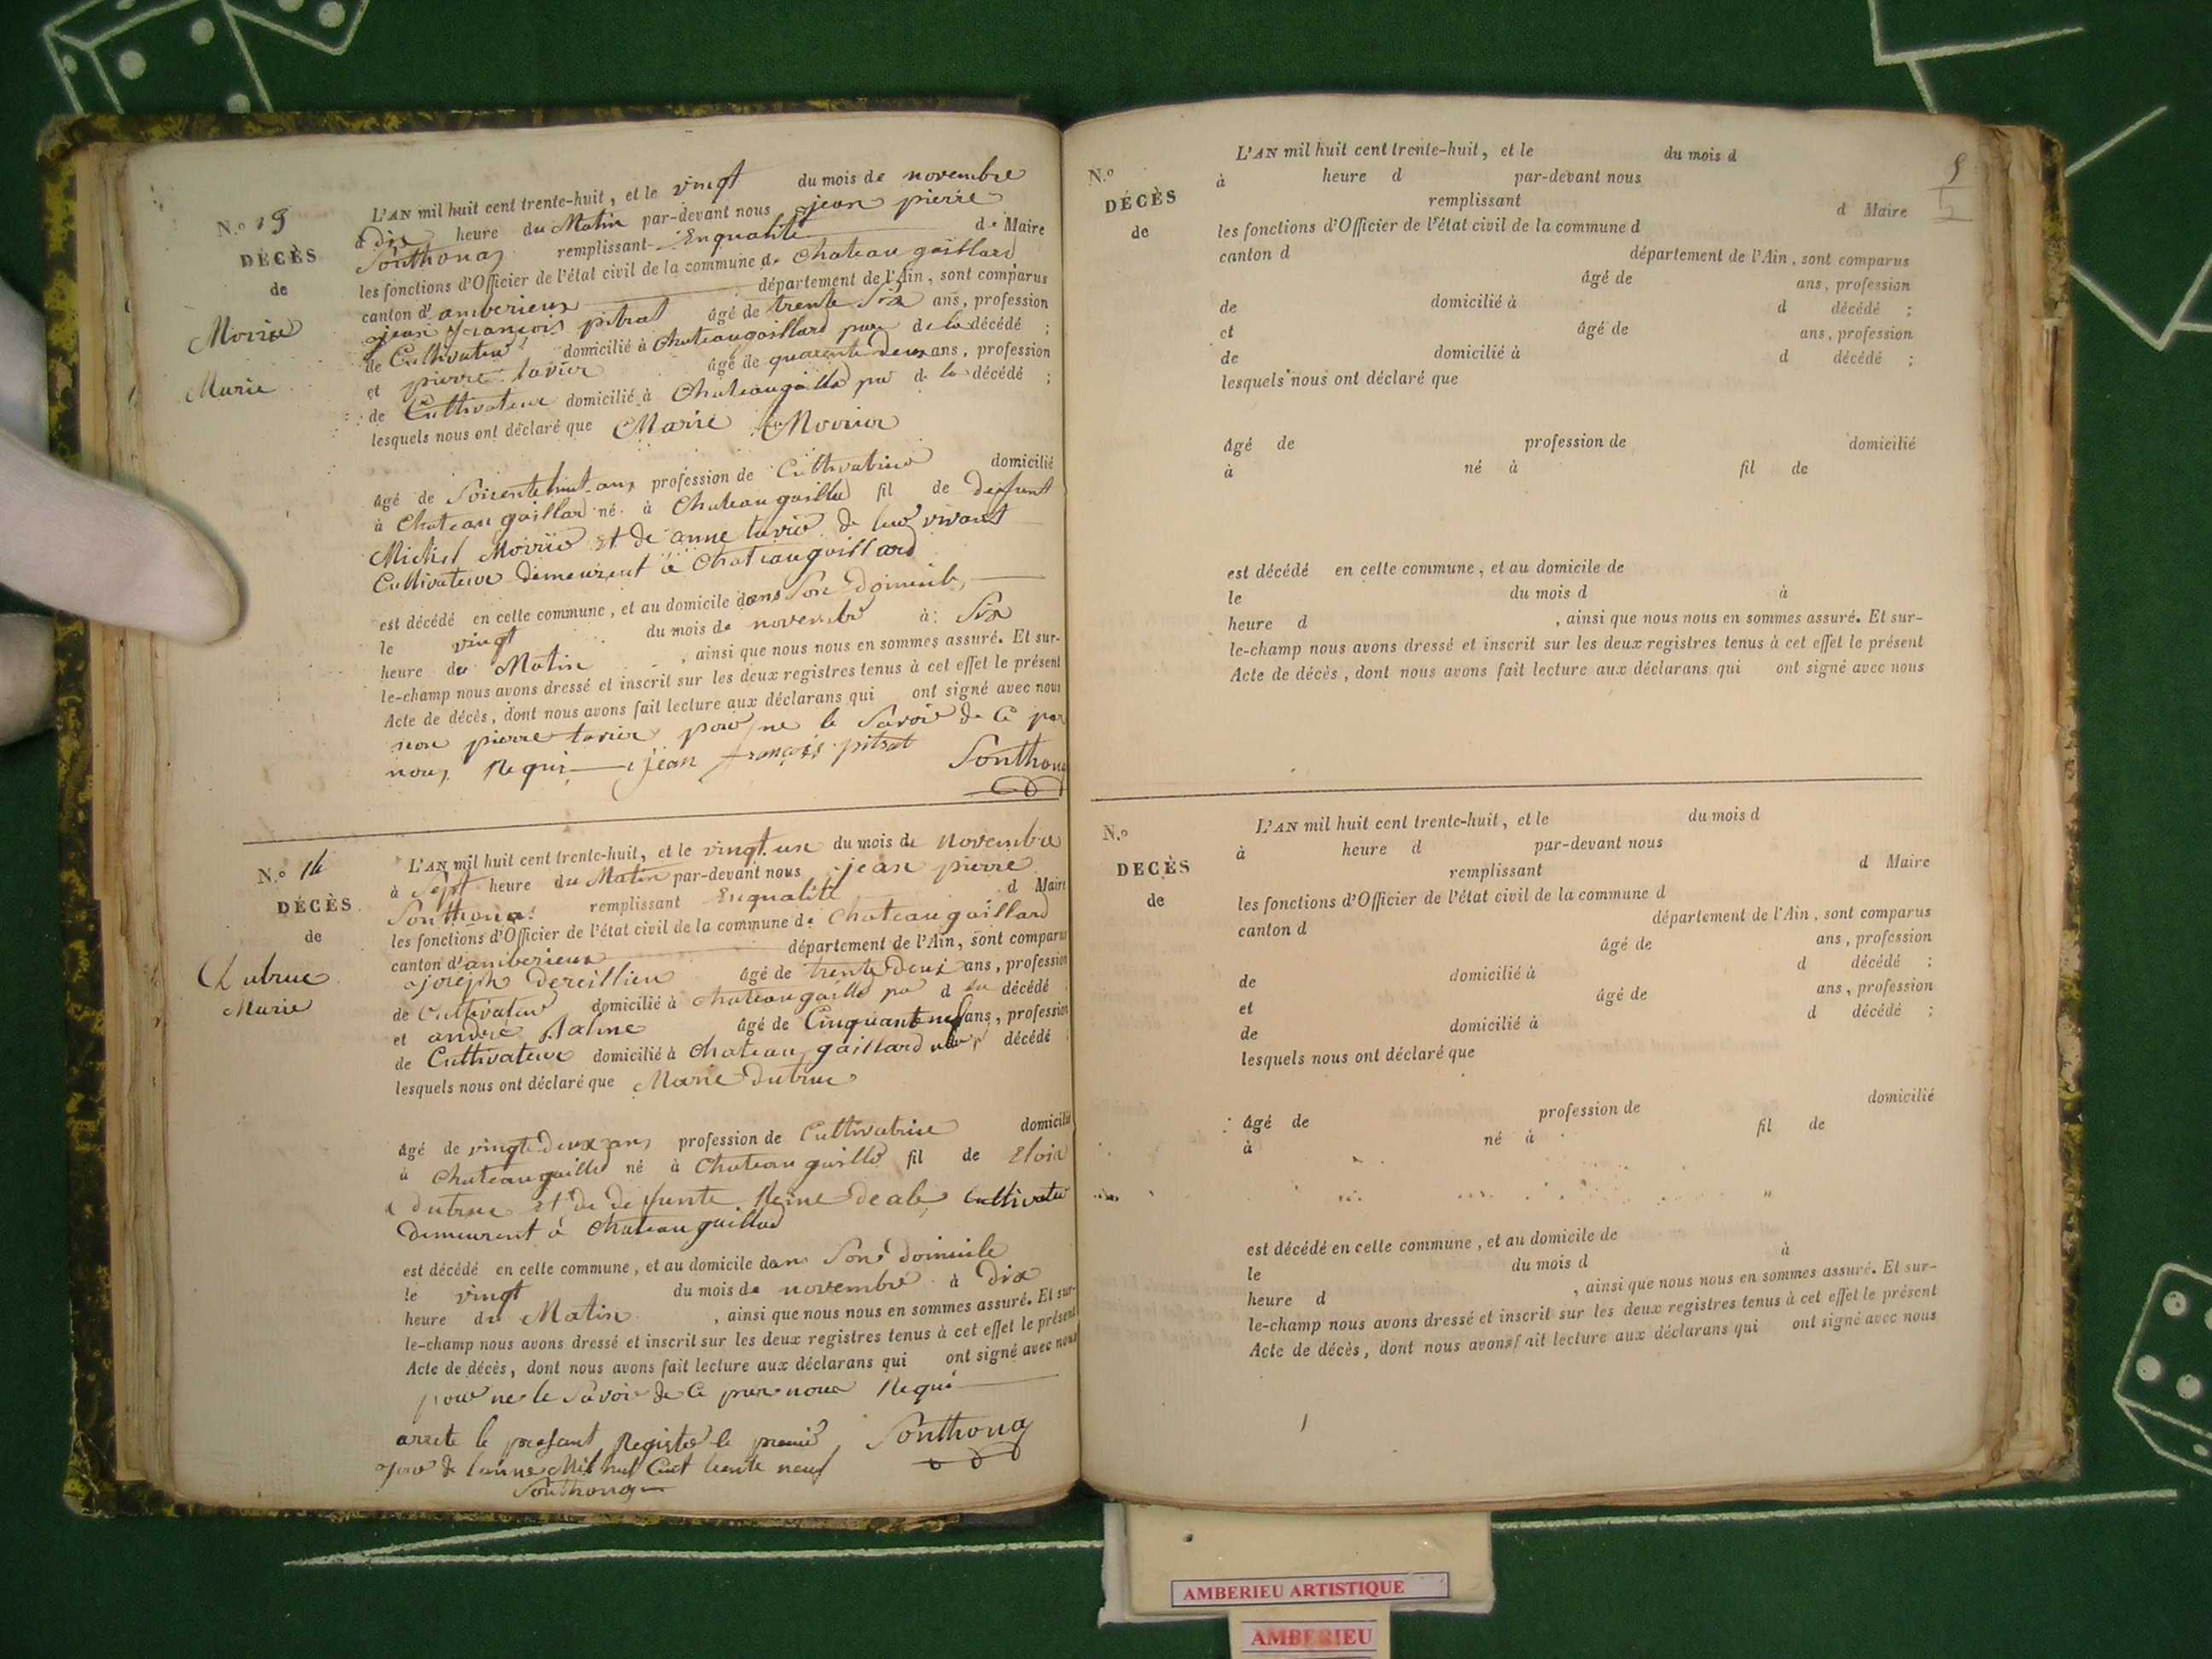 N.º 13
DÉCÈS
de
Movrié
Marie
L'AN mil huit cent trente-huit, et le vingt du mois de novembre
à dix heure du Matin par-devant nous jean pierre
Sonthonaz remplissant Enqualité de Maire
les fonctions d'Officier de l'état civil de la commune de Chateaugaillard
canton d'amberieux département de l'Ain, sont comparus
jean françois pitrat âgé de trente Six ans, profession
de Cultivateur domicilié à Chateaugaillard de la décédé ;
et pierre tavier âgé de quarante deux ans, profession
de Cultivateur domicilié à Chateaugaillard de la décédé ;
lesquels nous ont déclaré que Marie
âgé de Soixentehuit ans profession de Cultivatrice domicilié
à Chateaugaillard né à Chateaugaillard fil de deffunt
Michel et de anne de leur vivant
Cultivateur demeurent à Chateaugaillard
est décédé en cette commune, et au domicile dans Son domicile
le vingt du mois de novembre à Six
heure du Matin, ainsi que nous nous en sommes assuré. Et sur-
le-champ nous avons dressé et inscrit sur les deux registres tenus à cet effet le présent
Acte de décès, dont nous avons fait lecture aux déclarans qui ont signé avec nous
non pierre tavier pour ne le Savoir de Ce par
nous Requi jean françois pitrat Sonthonaz
N.º 14
DÉCÈS
de
Dutruc
Marie
L'AN mil huit cent trente-huit, et le vingt un du mois de novembre
à Sept heure du Matin par-devant nous jean pierre
Sonthonaz remplissant Enqualité d Maire
les fonctions d'Officier de l'état civil de la commune de Chateaugaillard
canton d'amberieux département de l'Ain, sont comparus
joseph âgé de trente Deux ans, profession
de Cultivateur domicilié à Chateaugaillard d la décédé
et andré âgé de Cinquanteneuf ans, profession
de Cultivateur domicilié à Chateaugaillard décédé
lesquels nous ont déclaré que Marie Dutruc
âgé de vingt Deux ans profession de Cultivatrice domicilié
à Chateaugaillard né à Chateaugaillard fil de Eloia
dutruc et de defunte Reine Cultivateur
Demeurent à Chateaugaillard
est décédé en cette commune, et au domicile dans Son domicile
le vingt du mois de novembre à Dix
heure du Matin, ainsi que nous nous en sommes assuré. Et sur-
le-champ nous avons dressé et inscrit sur les deux registres tenus à cet effet le présent
Acte de décès, dont nous avons fait lecture aux déclarans qui ont signé avec nous
pour ne le Savoir de Ce par nous Requi
arrete le present Registre le premier Sonthonaz
jour de lanne Mil huit Cent trente neuf
Sonthonaz
5
N.º
DÉCÈS
de
L'AN mil huit cent trente-huit, et le du mois d
à heure d par-devant nous
remplissant d Maire
les fonctions d'Officier de l'état civil de la commune d
canton d département de l'Ain, sont comparus
âgé de ans, profession
de domicilié à d décédé ;
et âgé de ans, profession
de domicilié à d décédé ;
lesquels nous ont déclaré que
âgé de profession de domicilié
à né à fil de
est décédé en cette commune, et au domicile de
le du mois d à
heure d , ainsi que nous nous en sommes assuré. Et sur-
le-champ nous avons dressé et inscrit sur les deux registres tenus à cet effet le présent
Acte de décès, dont nous avons fait lecture aux déclarans qui ont signé avec nous
N.º
DECÈS
de
L'AN mil huit cent trente-huit, et le du mois d
à heure d par-devant nous
remplissant d Maire
les fonctions d'Officier de l'état civil de la commune d
canton d département de l'Ain, sont comparus
âgé de ans, profession
de domicilié à d décédé ;
et âgé de ans, profession
de domicilié à d décédé ;
lesquels nous ont déclaré que
âgé de profession de domicilié
à né à fil de
est décédé en cette commune, et au domicile de
le du mois d à
heure d , ainsi que nous nous en sommes assuré. Et sur-
le-champ nous avons dressé et inscrit sur les deux registres tenus à cet effet le présent
Acte de décès, dont nous avons fait lecture aux déclarans qui ont signé avec nous
AMBERIEU ARTISTIQUE
AMBERIEU